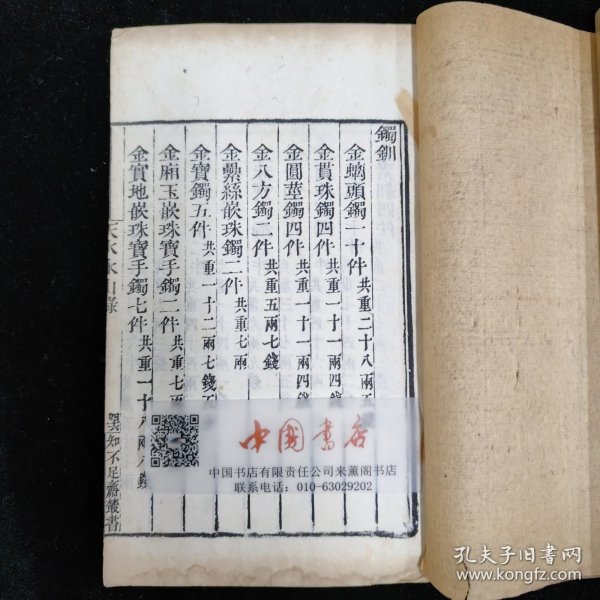 鐲釧
金螭頭鐲一十件 共重二十八兩
金貫珠鐲四件 共重一十一兩四錢
金圓莖鐲四件 共重一十一兩四錢
金八方鐲二件 共重五兩七錢
金纍絲嵌珠鐲二件 共重七兩
金寶鐲五件 共重一十二兩七錢
金廂玉嵌珠寶手鐲二件 共重七兩
金實地嵌珠寶手鐲七件 共重一十八兩八錢
天水冰山錄
知不足齋叢書
中國書店
中国书店有限责任公司来薰阁书店
联系电话：010-63029202
孔夫子旧书网
www.kongfz.com